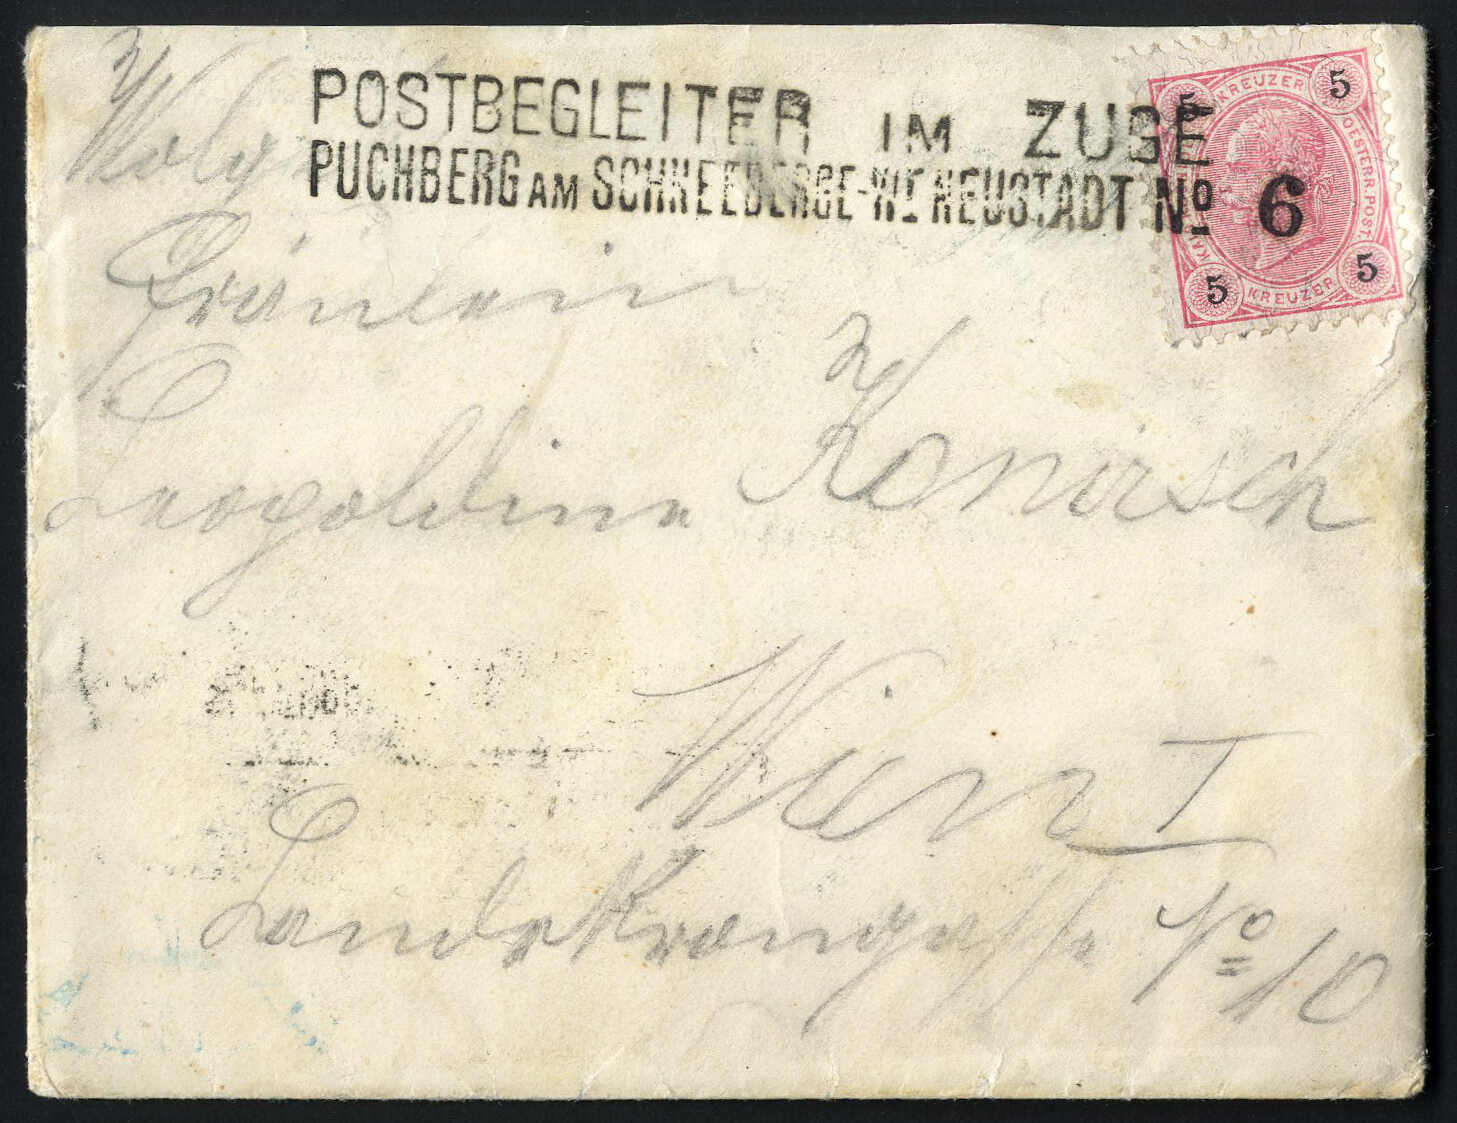 POSTBEGLEITER IM ZUGE
PUCHBERG AM SCHNEEBERGE-WR NEUSTADT No 6
5 5 5 5
KREUZER
OESTERR. POST.
KREUZER
Fräulein
Leopoldine Konirsch
Wien I
Landskrongasse No 10